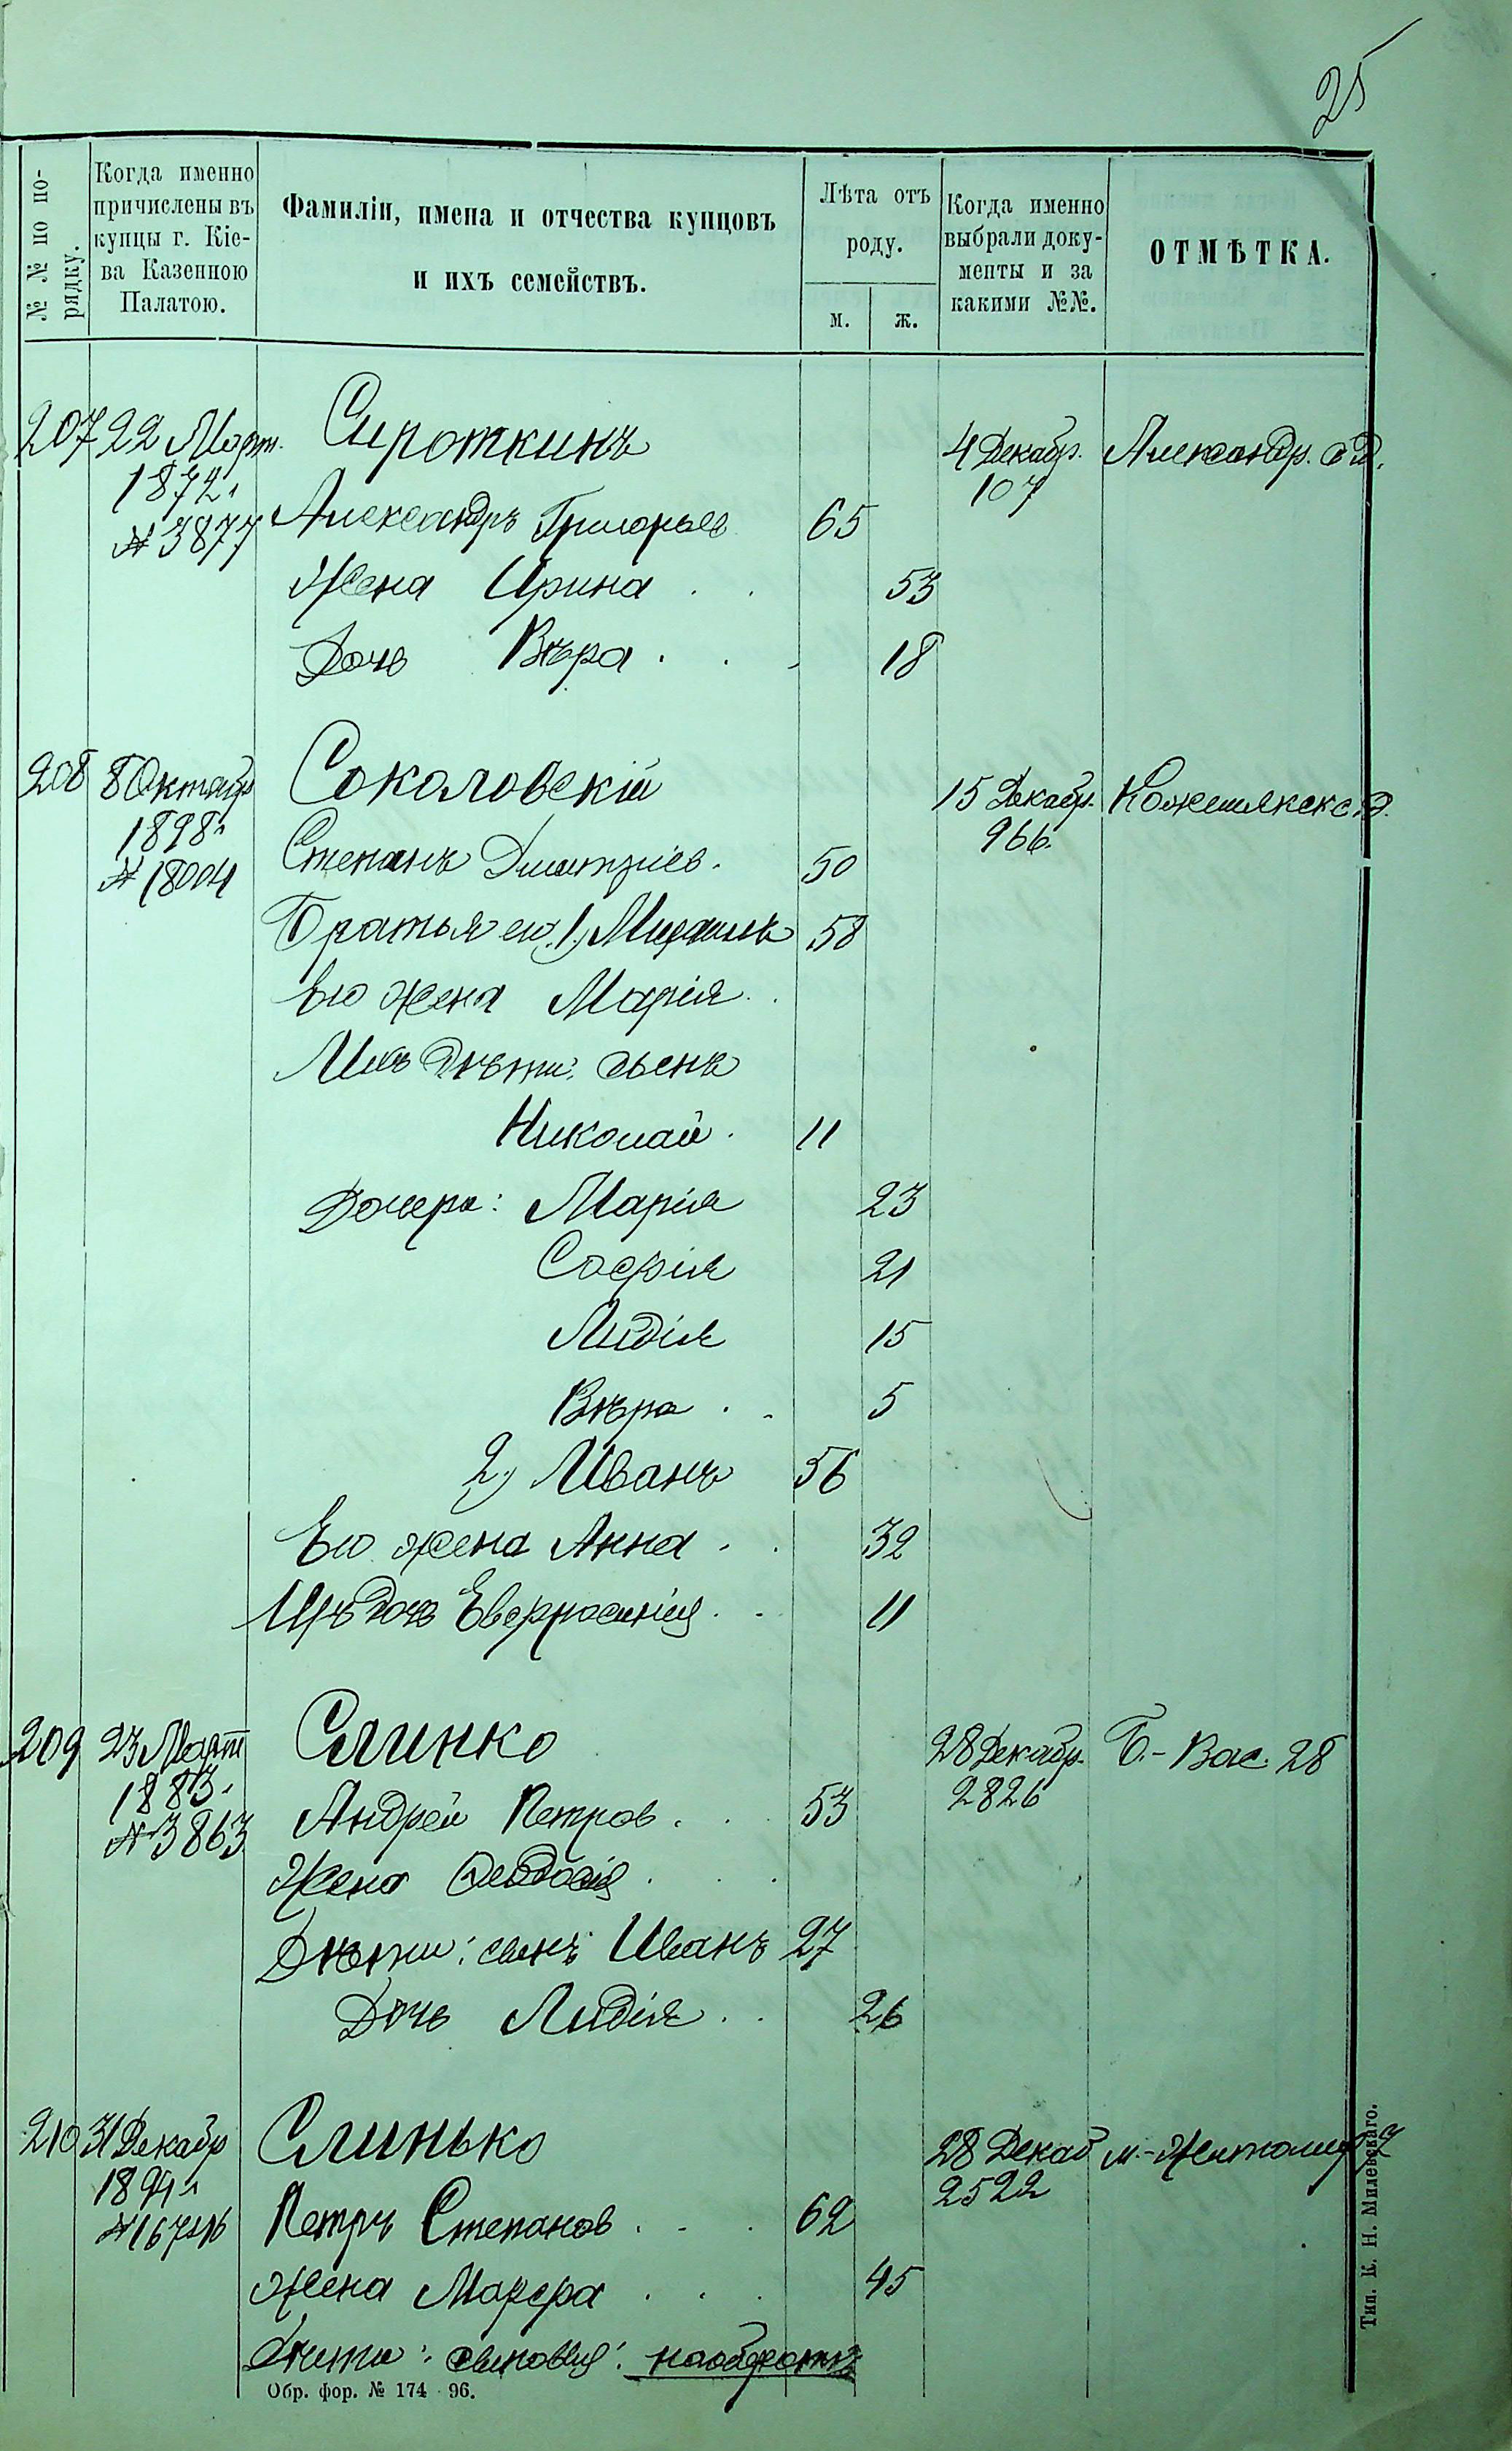 25
№ № по по-
рядку.
Когда именно
причислены въ
купцы г. Кіе-
ва Казенною
Палатою.
Фамиліи, имена и отчества купцовъ
и ихъ семействъ.
Лѣта отъ
роду.
м. ж.
Когда именно
выбрали доку-
менты и за
какими №№.
ОТМѢТКА.
207 22 Март. Сироткинъ 4 Декабр. Александр. с д.
1872 г 107
№ 3877 Александръ Григорьев 65
Жена Ирина . . 53
Дочь Вѣра . . 18
208 8 Октябр Соколовскій 15 Декабр. Кожемякск с. д.
1898 г 966.
№ 18004 Степанъ Дмитріев. 50
Братья его: 1) Михаилъ 58
Его жена Марія .
Ихъ дѣти: сынъ
Николай . 11
Дочери: Марія 23
Софія 21
Лидія 15
Вѣра . . 5
2) Иванъ 56
Его жена Анна . . 32
Ихъ дочь Евфросинія . . 11
209 23 Март Слинко 28 Декабр. Б.- Вас. 28
1883 г 2826
№ 3863 Андрей Петров . . 53
Жена Феодосія . . .
Дѣти: сынъ Иванъ 27
Дочь Лидія . . 26
210 31 Декабр Слинько 28 Декаб м.-Житомир 7
1894 г 2522
№ 16746 Петръ Степанов . . . 62
Жена Марфа . . . 45
Дѣти: сыновья: наоборотъ
Обр. фор. № 174 96.
Тип. К. Н. Милевскаго.